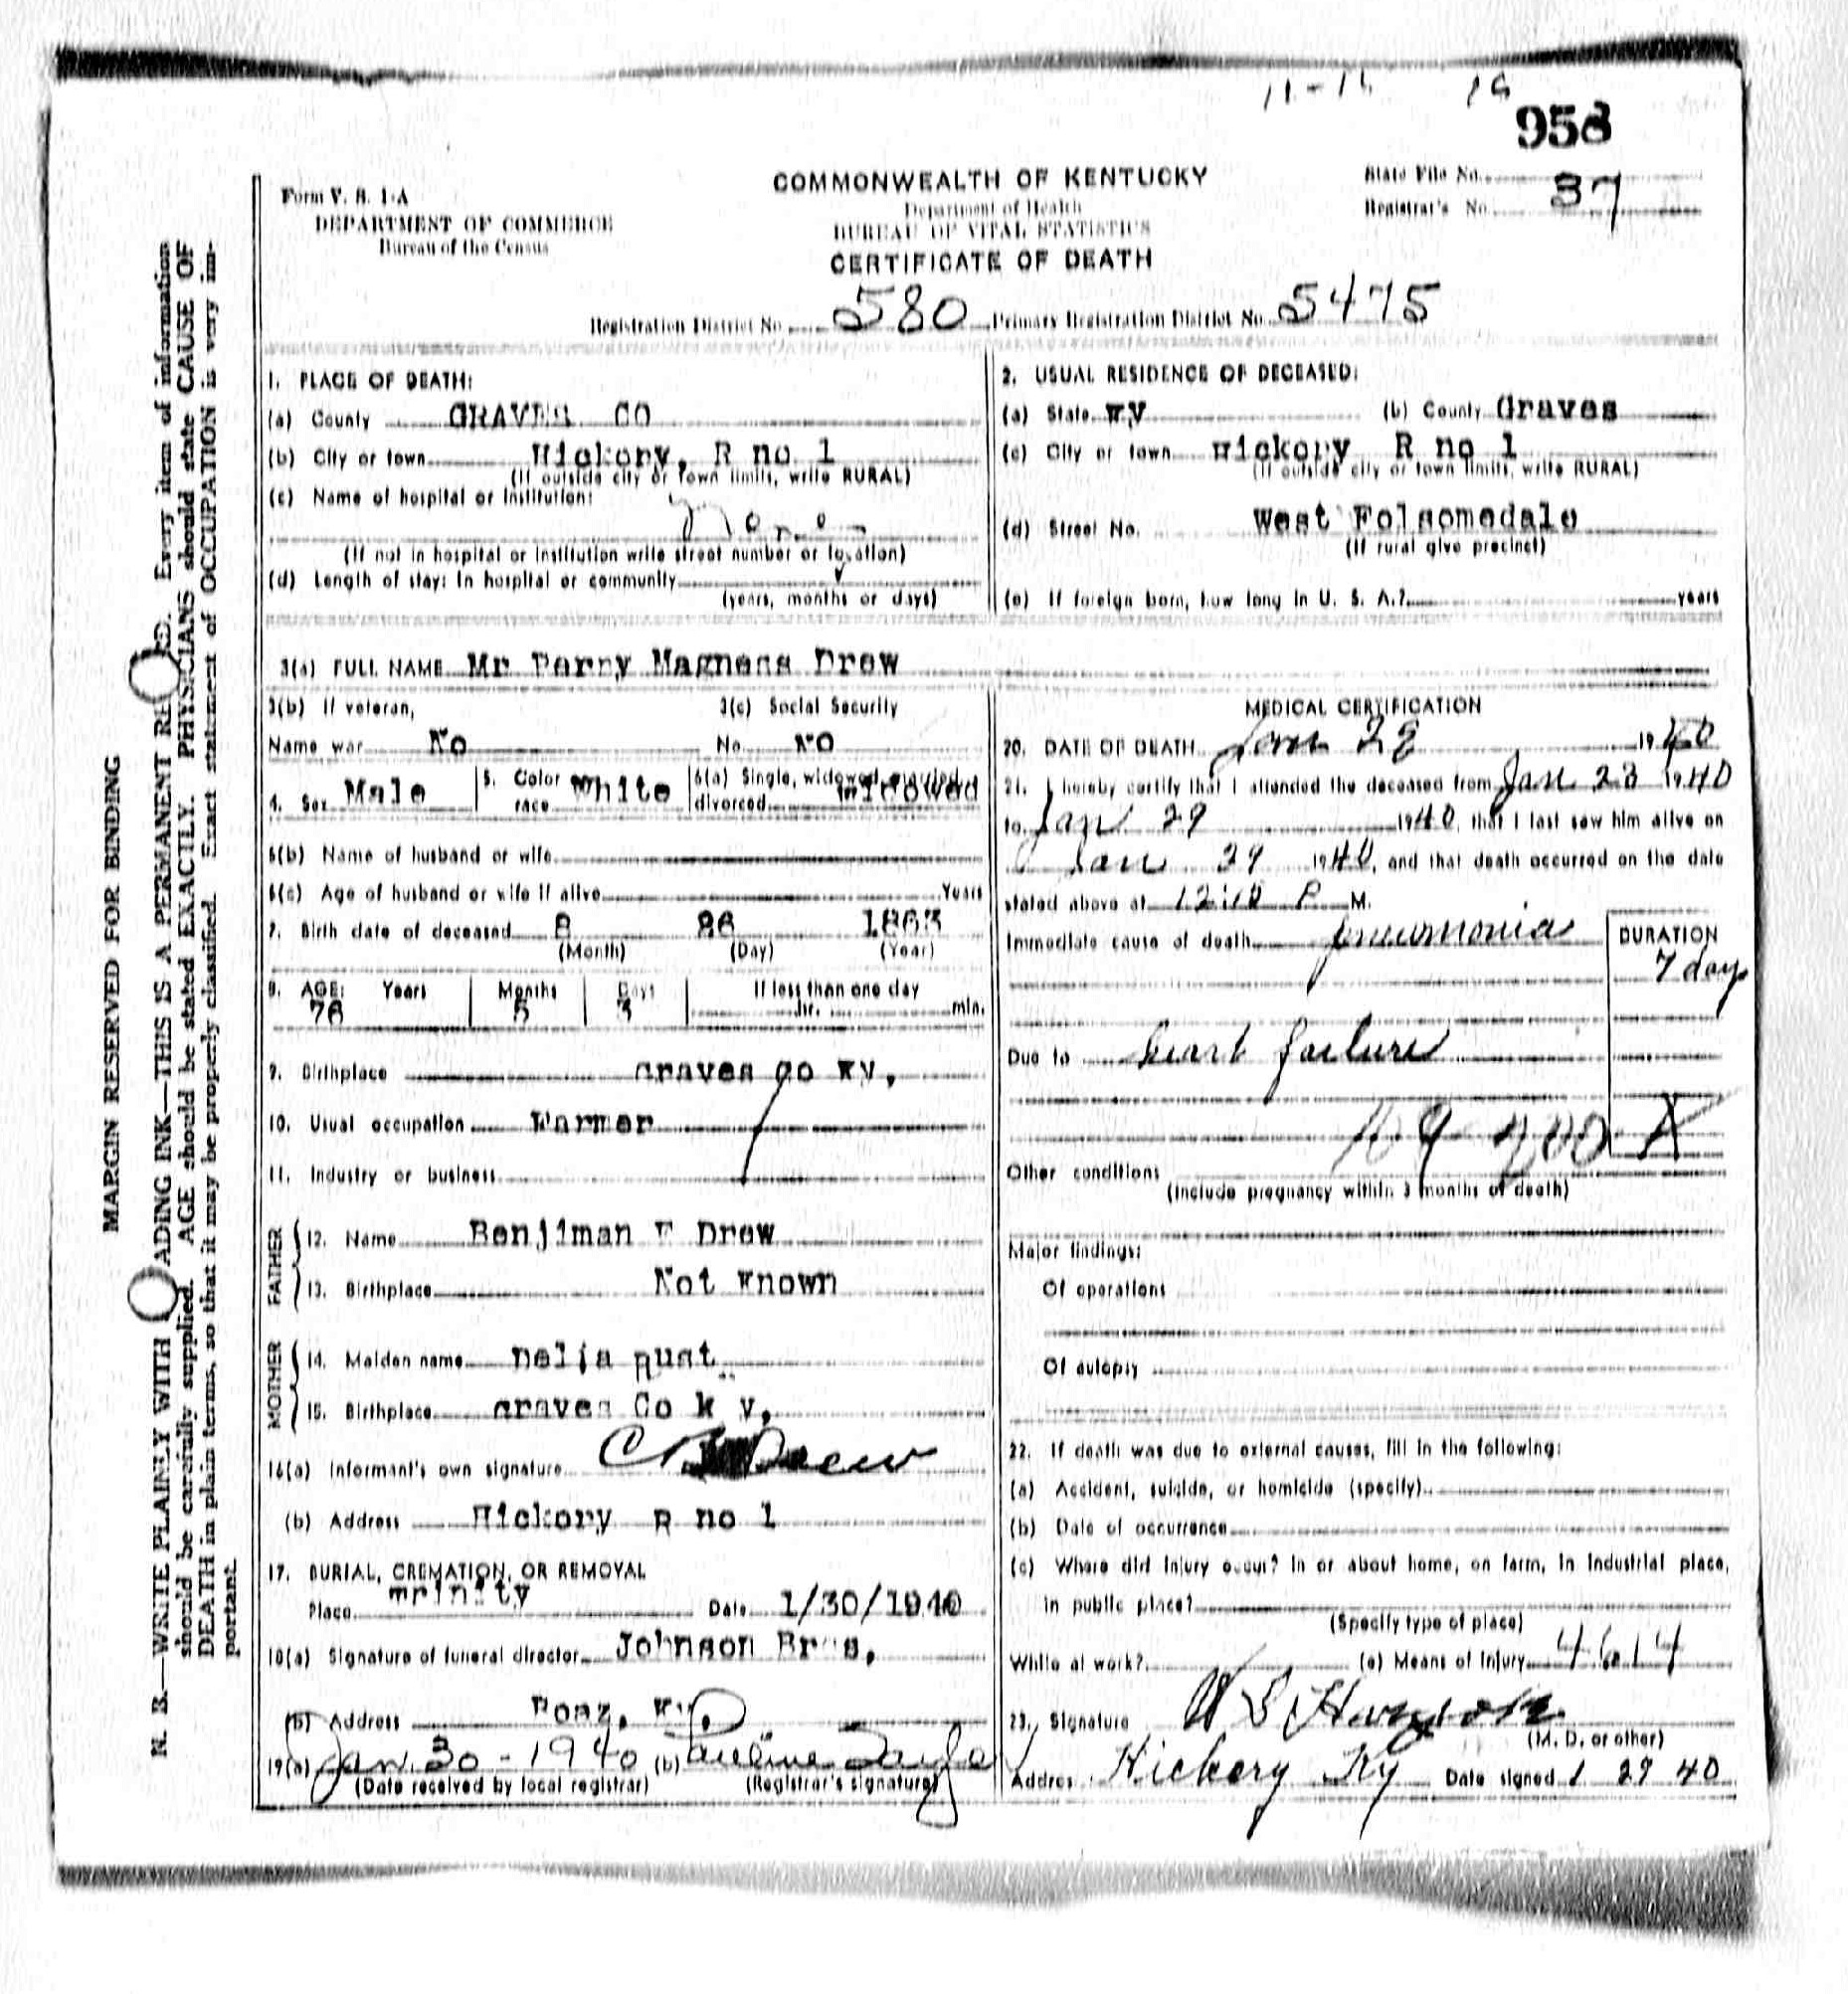 11-11 19
958
Form V. S. 1-A
DEPARTMENT OF COMMERCE
Bureau of the Census
COMMONWEALTH OF KENTUCKY
Department of Health
BUREAU OF VITAL STATISTICS
CERTIFICATE OF DEATH
State File No.
Registrar's No. 37
Registration District No. 580 Primary Registration District No. 5475
MARGIN RESERVED FOR BINDING
N. B.—WRITE PLAINLY WITH ADING INK—THIS IS A PERMANENT RE RD. Every item of information
should be carefully supplied. AGE should be stated EXACTLY. PHYSICIANS should state CAUSE OF
DEATH in plain terms, so that it may be properly classified. Exact statement of OCCUPATION is very im-
portant.
1. PLACE OF DEATH:
(a) County GRAVES CO
(b) City or town Hickory, R no 1
(If outside city or town limits, write RURAL)
(c) Name of hospital or institution:
None
(If not in hospital or institution write street number or location)
(d) Length of stay: In hospital or community
(years, months or days)
2. USUAL RESIDENCE OF DECEASED:
(a) State Ky (b) County Graves
(c) City or town Hickory R no 1
(If outside city or town limits, write RURAL)
(d) Street No. West Folsomedale
(If rural give precinct)
(e) If foreign born, how long in U. S. A.? years
3(a) FULL NAME Mr Perry Magness Drew
3(b) If veteran, 3(c) Social Security
Name war No No. No
4. Sex Male 5. Color race White 6(a) Single, widowed, married, divorced Widowed
6(b) Name of husband or wife
6(c) Age of husband or wife if alive Years
7. Birth date of deceased 8 26 1863
(Month) (Day) (Year)
8. AGE: Years Months Days If less than one day
76 5 3 hr. min.
9. Birthplace Graves Co Ky,
10. Usual occupation Farmer
11. Industry or business
FATHER
12. Name Benjiman F Drew
13. Birthplace Not Known
MOTHER
14. Maiden name Delia Rust
15. Birthplace Graves Co K y,
16(a) Informant's own signature C Drew
(b) Address Hickory R no 1
17. BURIAL, CREMATION, OR REMOVAL
Place Trinity Date 1/30/1940
18(a) Signature of funeral director Johnson Bros,
(b) Address Boaz, Ky,
19(a) Jan. 30 - 1940 (b) Pauline
(Date received by local registrar) (Registrar's signature)
MEDICAL CERTIFICATION
20. DATE OF DEATH Jan 29 1940
21. I hereby certify that I attended the deceased from Jan 23 1940
to Jan 29 1940, that I last saw him alive on
Jan 29 1940, and that death occurred on the date
stated above at 12:10 P M.
Immediate cause of death pneumonia
DURATION
7 days
Due to heart failure
109 200 X
Other conditions
(Include pregnancy within 3 months of death)
Major findings:
Of operations
Of autopsy
22. If death was due to external causes, fill in the following:
(a) Accident, suicide, or homicide (specify)
(b) Date of occurrence
(c) Where did injury occur? In or about home, on farm, in industrial place,
in public place?
(Specify type of place)
While at work? (e) Means of Injury 4614
23. Signature W S
(M. D. or other)
Address Hickory Ky Date signed 1 29 40